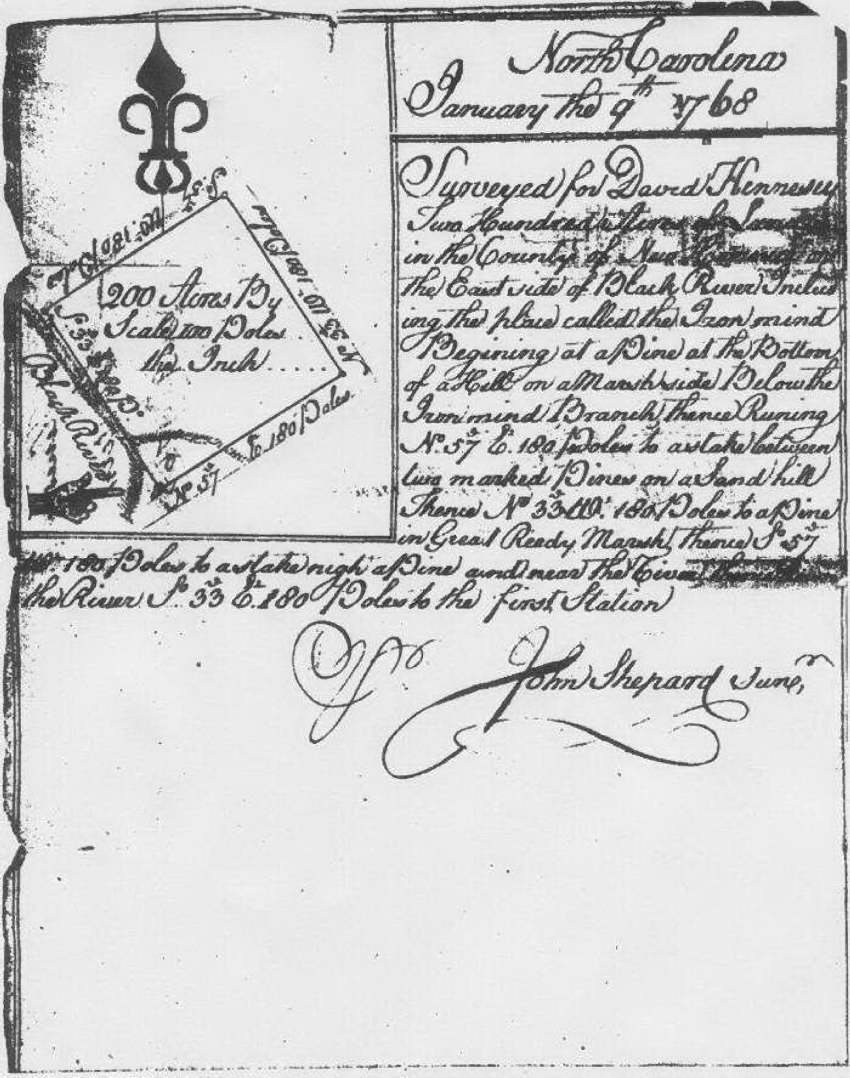 North Carolina
January the 9th 1768
Surveyed for David Hennessy
Two Hundred Acres of Land
in the County of New Hanover on
the East side of Black River Includ
ing the place called the Iron mind
Begining at a Pine at the Bottom
of a Hill on a Marsh side Below the
Iron mind Branch thence Runing
No. 57 E. 180 Poles to a stake between
two marked Pines on a Sand hill
Thence No 33 W. 180 Poles to a Pine
in Great Reedy Marsh thence So 57
W. 180 Poles to a stake nigh a Pine and near the River
the River So 33 E. 180 Poles to the first Station
Pr John Shepard Junr
So. 57 W. 180 Poles
No 33 W. 180 Poles
200 Acres By
Scale 100 Poles
the Inch
So. 33 E. 180 Po
Black River
No 57 E. 180 Poles